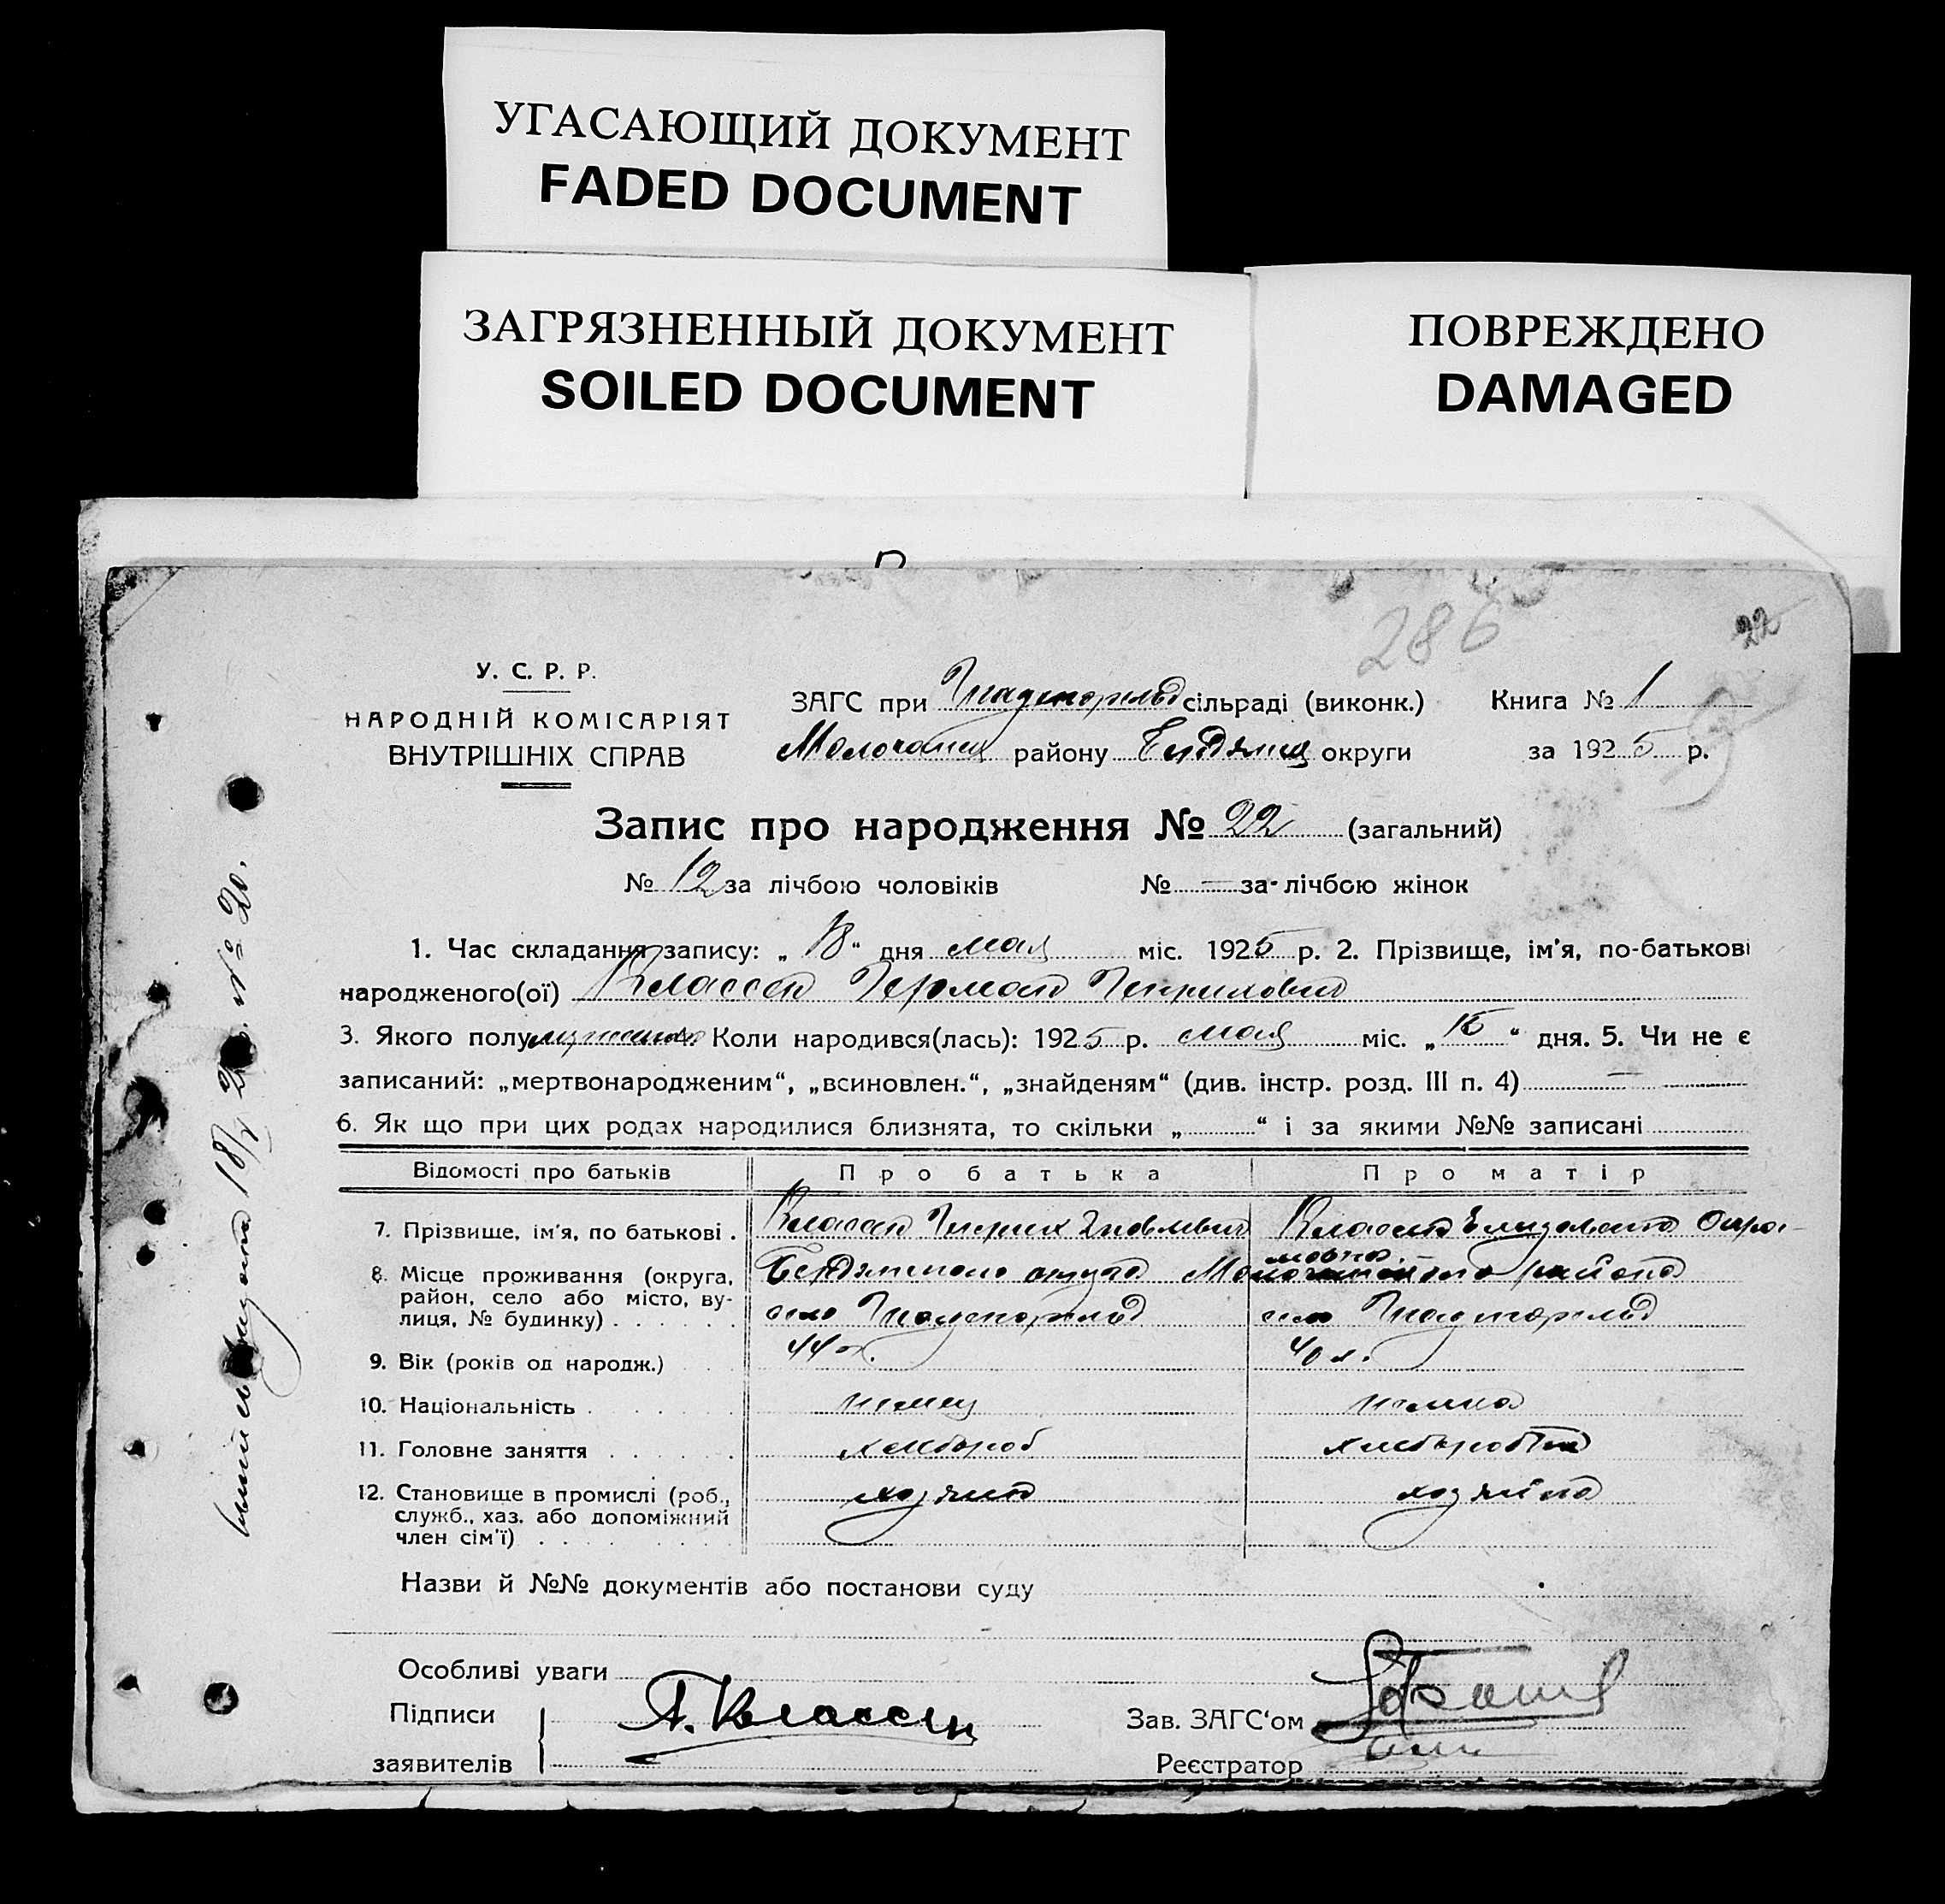 УГАСАЮЩИЙ ДОКУМЕНТ
FADED DOCUMENT
ЗАГРЯЗНЕННЫЙ ДОКУМЕНТ
SOILED DOCUMENT
ПОВРЕЖДЕНО
DAMAGED
286
22
У. С. Р. Р.
НАРОДНІЙ КОМІСАРІЯТ
ВНУТРІШНІХ СПРАВ
ЗАГС при сільраді (виконк.) Книга № 1
району округи за 1925 р.
Запис про народження № 22 (загальний)
№ 12 за лічбою чоловіків № — за лічбою жінок
1. Час складання запису: „18“ дня мая міс. 1925 р. 2. Прізвище, ім'я, по-батькові
народженого(ої) Классен Герман Генрихович
3. Якого полу Коли народився(лась): 1925 р. мая міс. „ “ дня. 5. Чи не є
записаний: „мертвонародженим“, „всиновлен.“, „знайденям“ (див. інстр. розд. III п. 4) —
6. Як що при цих родах народилися близнята, то скільки „ “ і за якими №№ записані
Відомості про батьків Про батька Про матір
7. Прізвище, ім'я, по батькові . Классен Генрих Классен Елизавета
8. Місце проживання (округа, Бердянского округа Молочанского района
район, село або місто, ву-
лиця, № будинку) . . . . . . село село
9. Вік (років од народж.) 44 40 л.
10. Національність . немец немка
11. Головне заняття . . . . . . хлебороб хлеборобка
12. Становище в промислі (роб., хозяин хозяйка
служб., хаз. або допоміжний
член сім'ї) . . . . . . . .
Назви й №№ документів або постанови суду
Особливі уваги
Підписи Г. Классен Зав. ЗАГС‘ом
заявителів Реєстратор